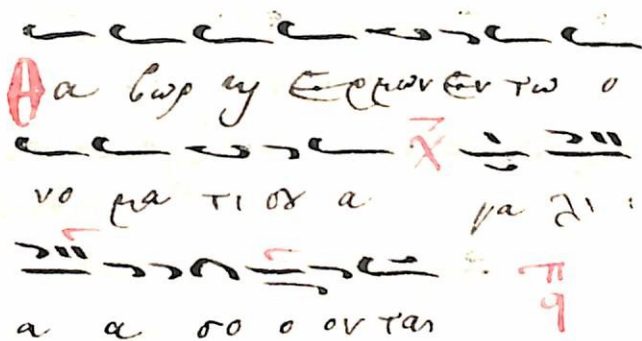 Θα βωρ ϗ Ερμων εν τω ο
νο μα τι σου α γα λι ι
α α σο ο ον ται